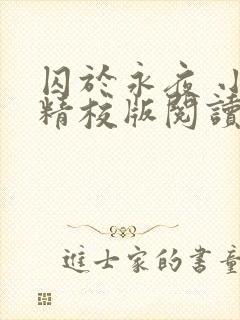 囚於永夜 小
精校版閱讀
進士家的書童